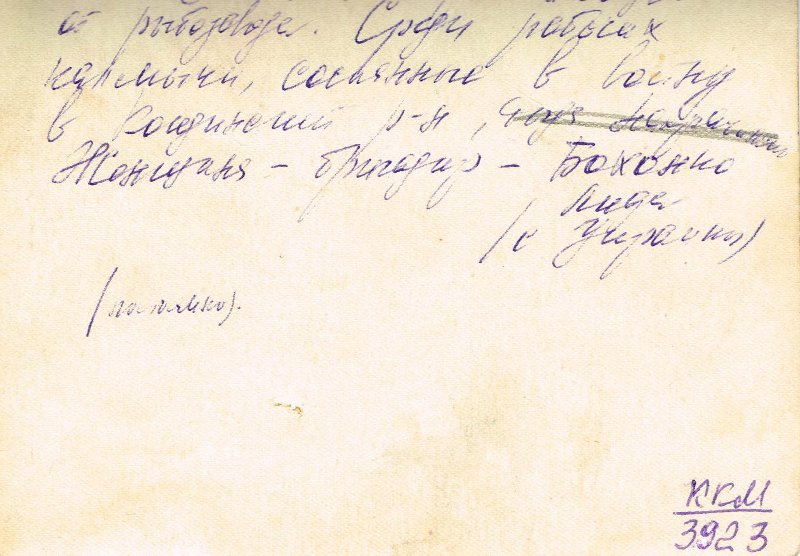 от рыбозавода. Среди рабочих
калмычки, сосланные в войну
в Кондинский р-н,
Женщина - бригадир - Бохонко
Лида
(с Украины)
ККМ
3923